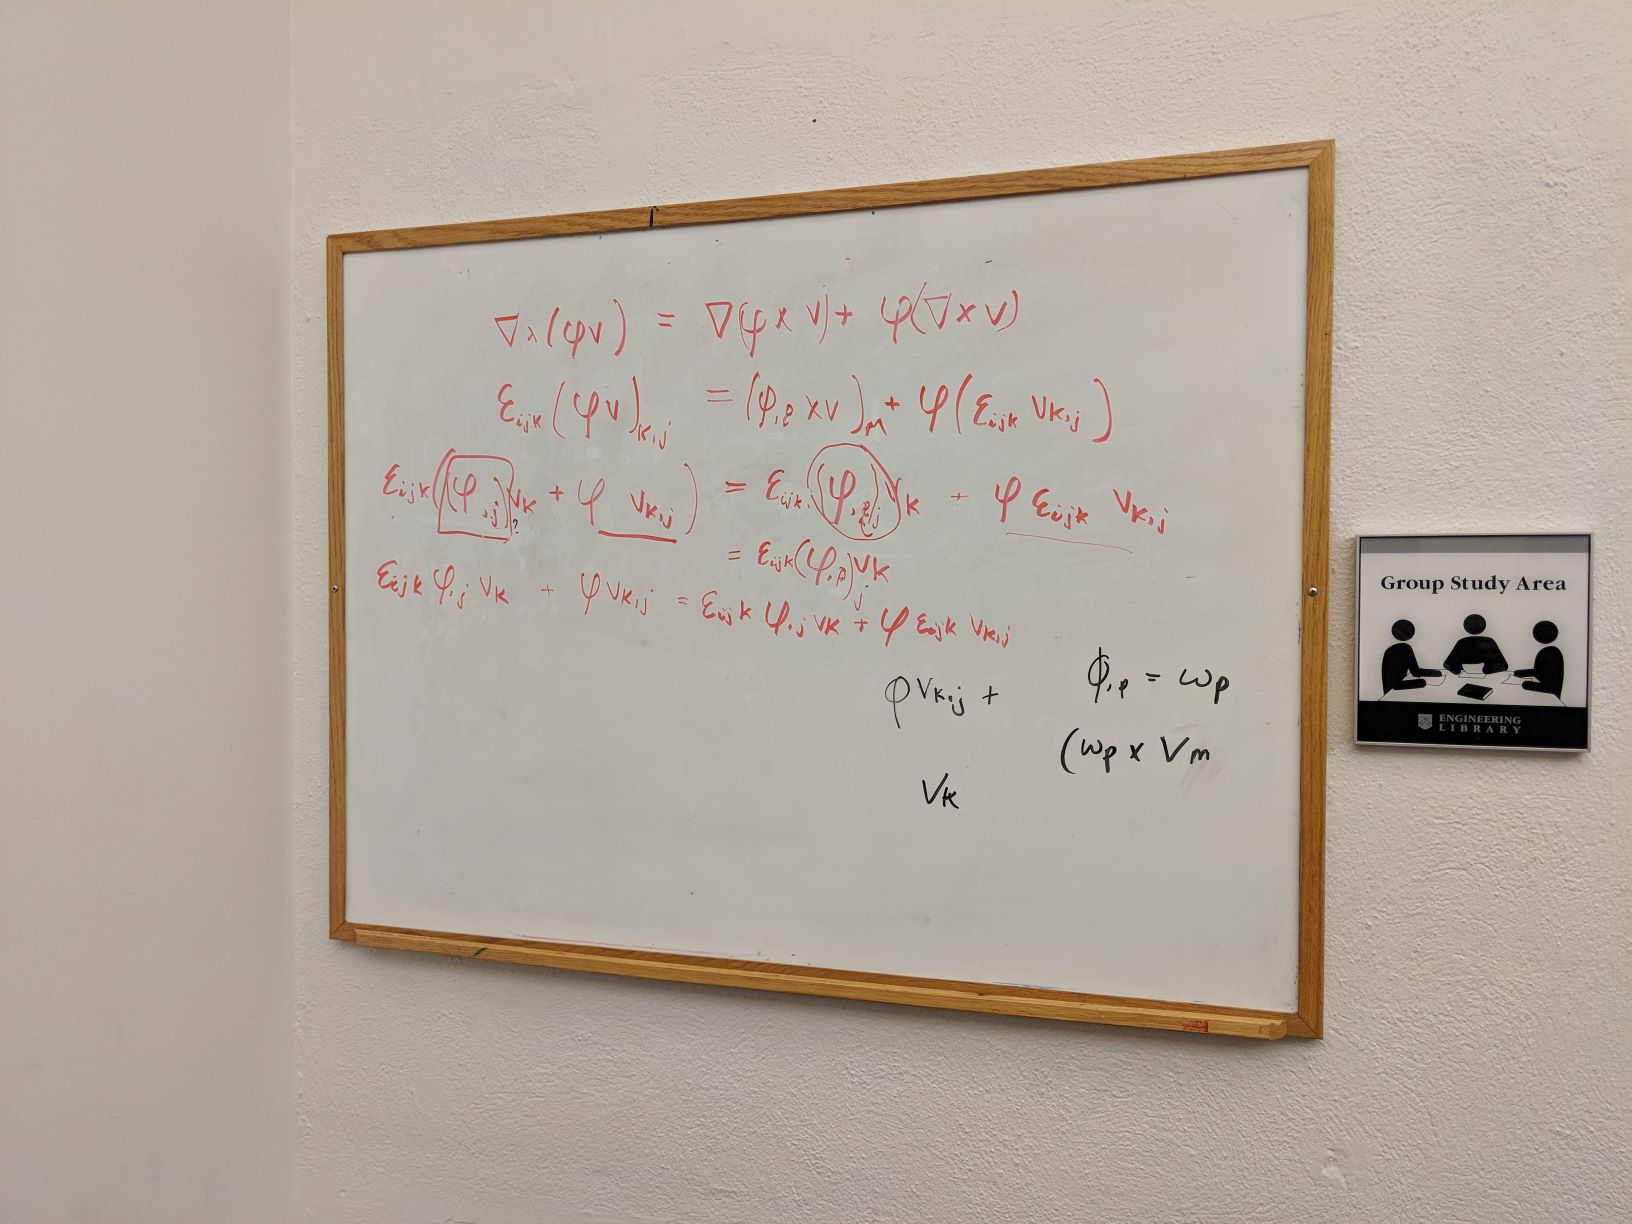 ∇×(φv) = ∇(φ × v) + φ(∇×v)
ε_ijk (φv)_k,j = (φ,p × v)_m + φ(ε_ijk v_k,j)
ε_ijk((φ,j) v_k + φ v_k,j) = ε_ijk (φ,p)_j v_k + φ ε_ijk v_k,j
?
= ε_ijk (φ,p)_j v_k
ε_ijk φ,j v_k + φ v_k,j = ε_ijk φ,j v_k + φ ε_ijk v_k,j
φ v_k,j +
ϕ,p = w_p
(w_p × V_m
V_k
Group Study Area
ENGINEERING
LIBRARY